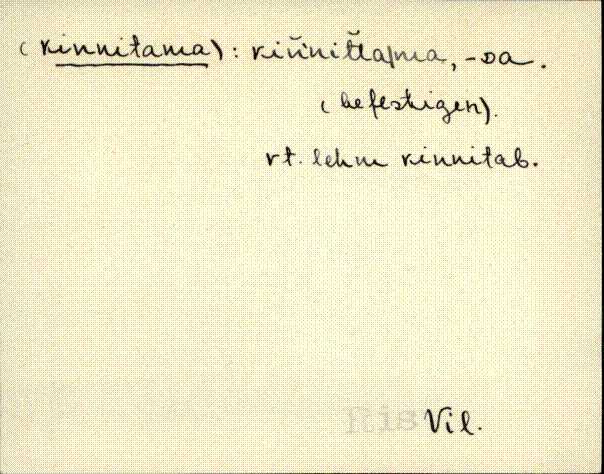 (kinnitama): kin̆nit̆ta/ma, -da.
(befestigen).
vt. lehm kinnitab.
Ris Vil.